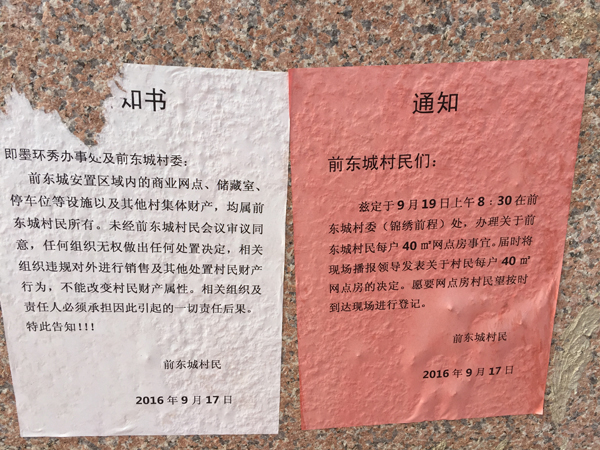 知书
即墨环秀办事处及前东城村委：
前东城安置区域内的商业网点、储藏室、
停车位等设施以及其他村集体财产，均属前
东城村民所有。未经前东城村民会议审议同
意，任何组织无权做出任何处置决定，相关
组织违规对外进行销售及其他处置村民财产
行为，不能改变村民财产属性。相关组织及
责任人必须承担因此引起的一切责任后果。
特此告知!!!
前东城村民
2016 年 9 月 17 日
通知
前东城村民们：
兹定于 9 月 19 日上午 8：30 在前
东城村委（锦绣前程）处，办理关于前
东城村民每户 40 ㎡网点房事宜。届时将
现场播报领导发表关于村民每户 40 ㎡
网点房的决定。愿要网点房村民望按时
到达现场进行登记。
前东城村民
2016 年 9 月 17 日